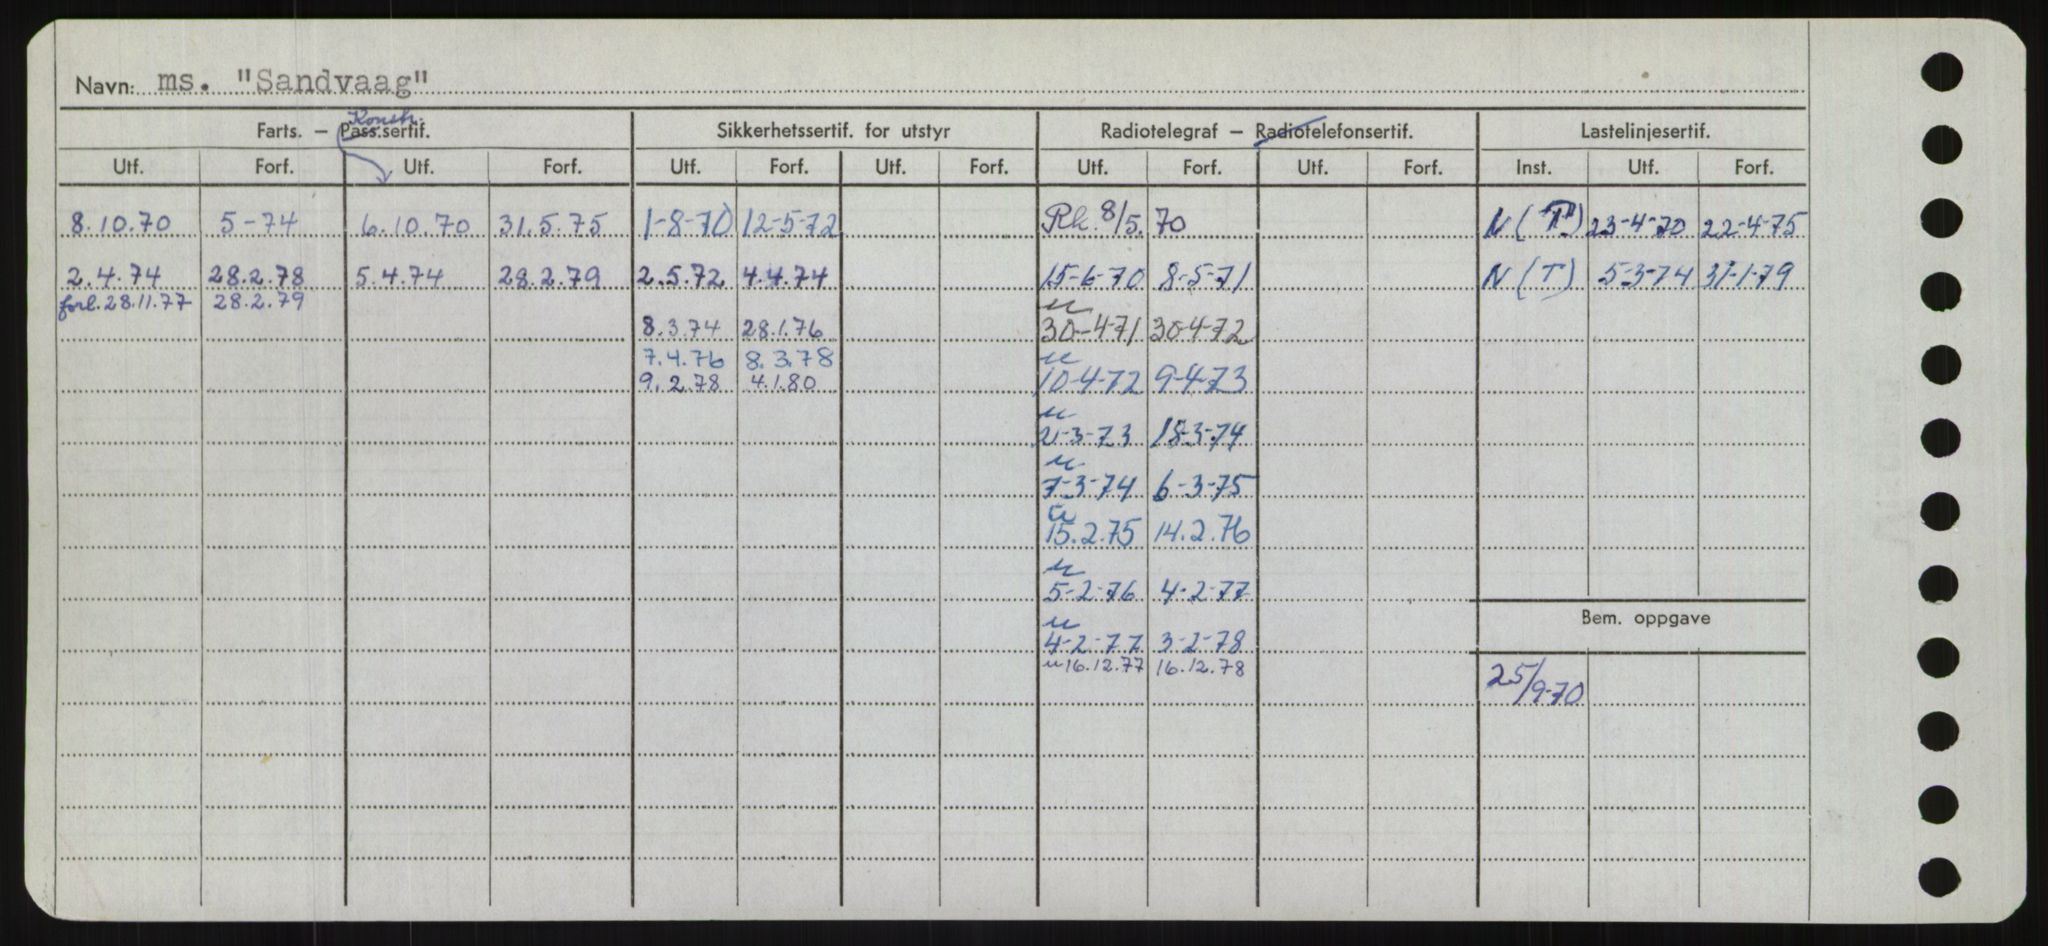 Navn: ms. "Sandvaag"
Konstr.
Farts. – Pass.sertif. Sikkerhetssertif. for utstyr Radiotelegraf – Radiotelefonsertif. Lastelinjesertif.
Utf. Forf. Utf. Forf. Utf. Forf. Utf. Forf. Utf. Forf. Utf. Forf. Inst. Utf. Forf.
8.10.70 5-74 6.10.70 31.5.75 1-8-70 12-5-72 Rk. 8/5.70 N (T) 23-4-70 22-4-75
2.4.74 28.2.78 5.4.74 28.2.79 2.5.72 4.4.74 15-6-70 8-5-71 N (T) 5-3-74 31-1-79
forl. 28.11.77 28.2.79 u
8.3.74 28.1.76 30-4-71 30-4-72
7.4.76 8.3.78 u
9.2.78 4.1.80 10-4-72 9-4-73
u
2-3-73 18-3-74
u
7-3-74 6-3-75
u
15.2.75 14.2.76
u
5-2-76 4-2-77
Bem. oppgave
u
4-2-77 3-2-78
u 16.12.77 16.12.78
25/9-70